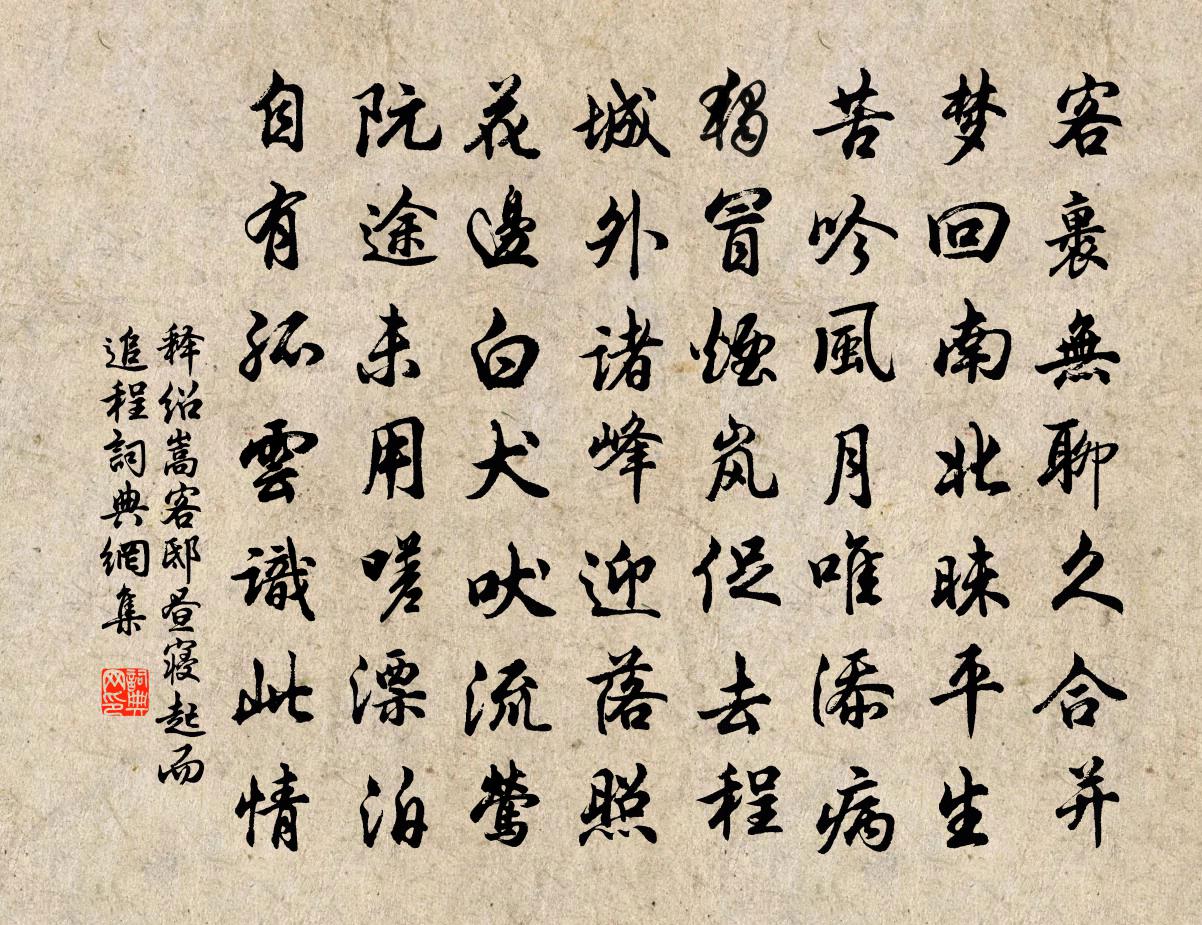 客裏無聊久合并
梦回南北昧平生
苦吟風月唯添病
獨冒煙岚促去程
城外諸峰迎落照
花邊白犬吠流鶯
阮途未用嗟漂泊
自有孤雲識此情
释绍嵩客邸昼寢起而
追程詞典網集
詞典网印